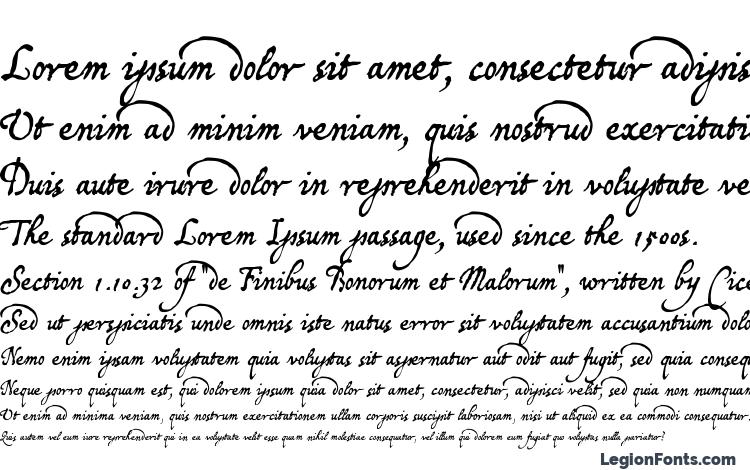 Lorem ipsum dolor sit amet, consectetur adipis
Ut enim ad minim veniam, quis nostrud exercitati
Duis aute irure dolor in reprehenderit in voluptate ve
The standard Lorem Ipsum passage, used since the 1500s.
Section 1.10.32 of "de Finibus Bonorum et Malorum", written by Cice
Sed ut perspiciatis unde omnis iste natus error sit voluptatem accusantium dolo
Nemo enim ipsam voluptatem quia voluptas sit aspernatur aut odit aut fugit, sed quia conseq
Neque porro quisquam est, qui dolorem ipsum quia dolor sit amet, consectetur, adipisci velit, sed quia non numquam
Ut enim ad minima veniam, quis nostrum exercitationem ullam corporis suscipit laboriosam, nisi ut aliquid ex ea commodi consequatur.
Quis autem vel eum iure reprehenderit qui in ea voluptate velit esse quam nihil molestiae consequatur, vel illum qui dolorem eum fugiat quo voluptas nulla pariatur?
LegionFonts.com